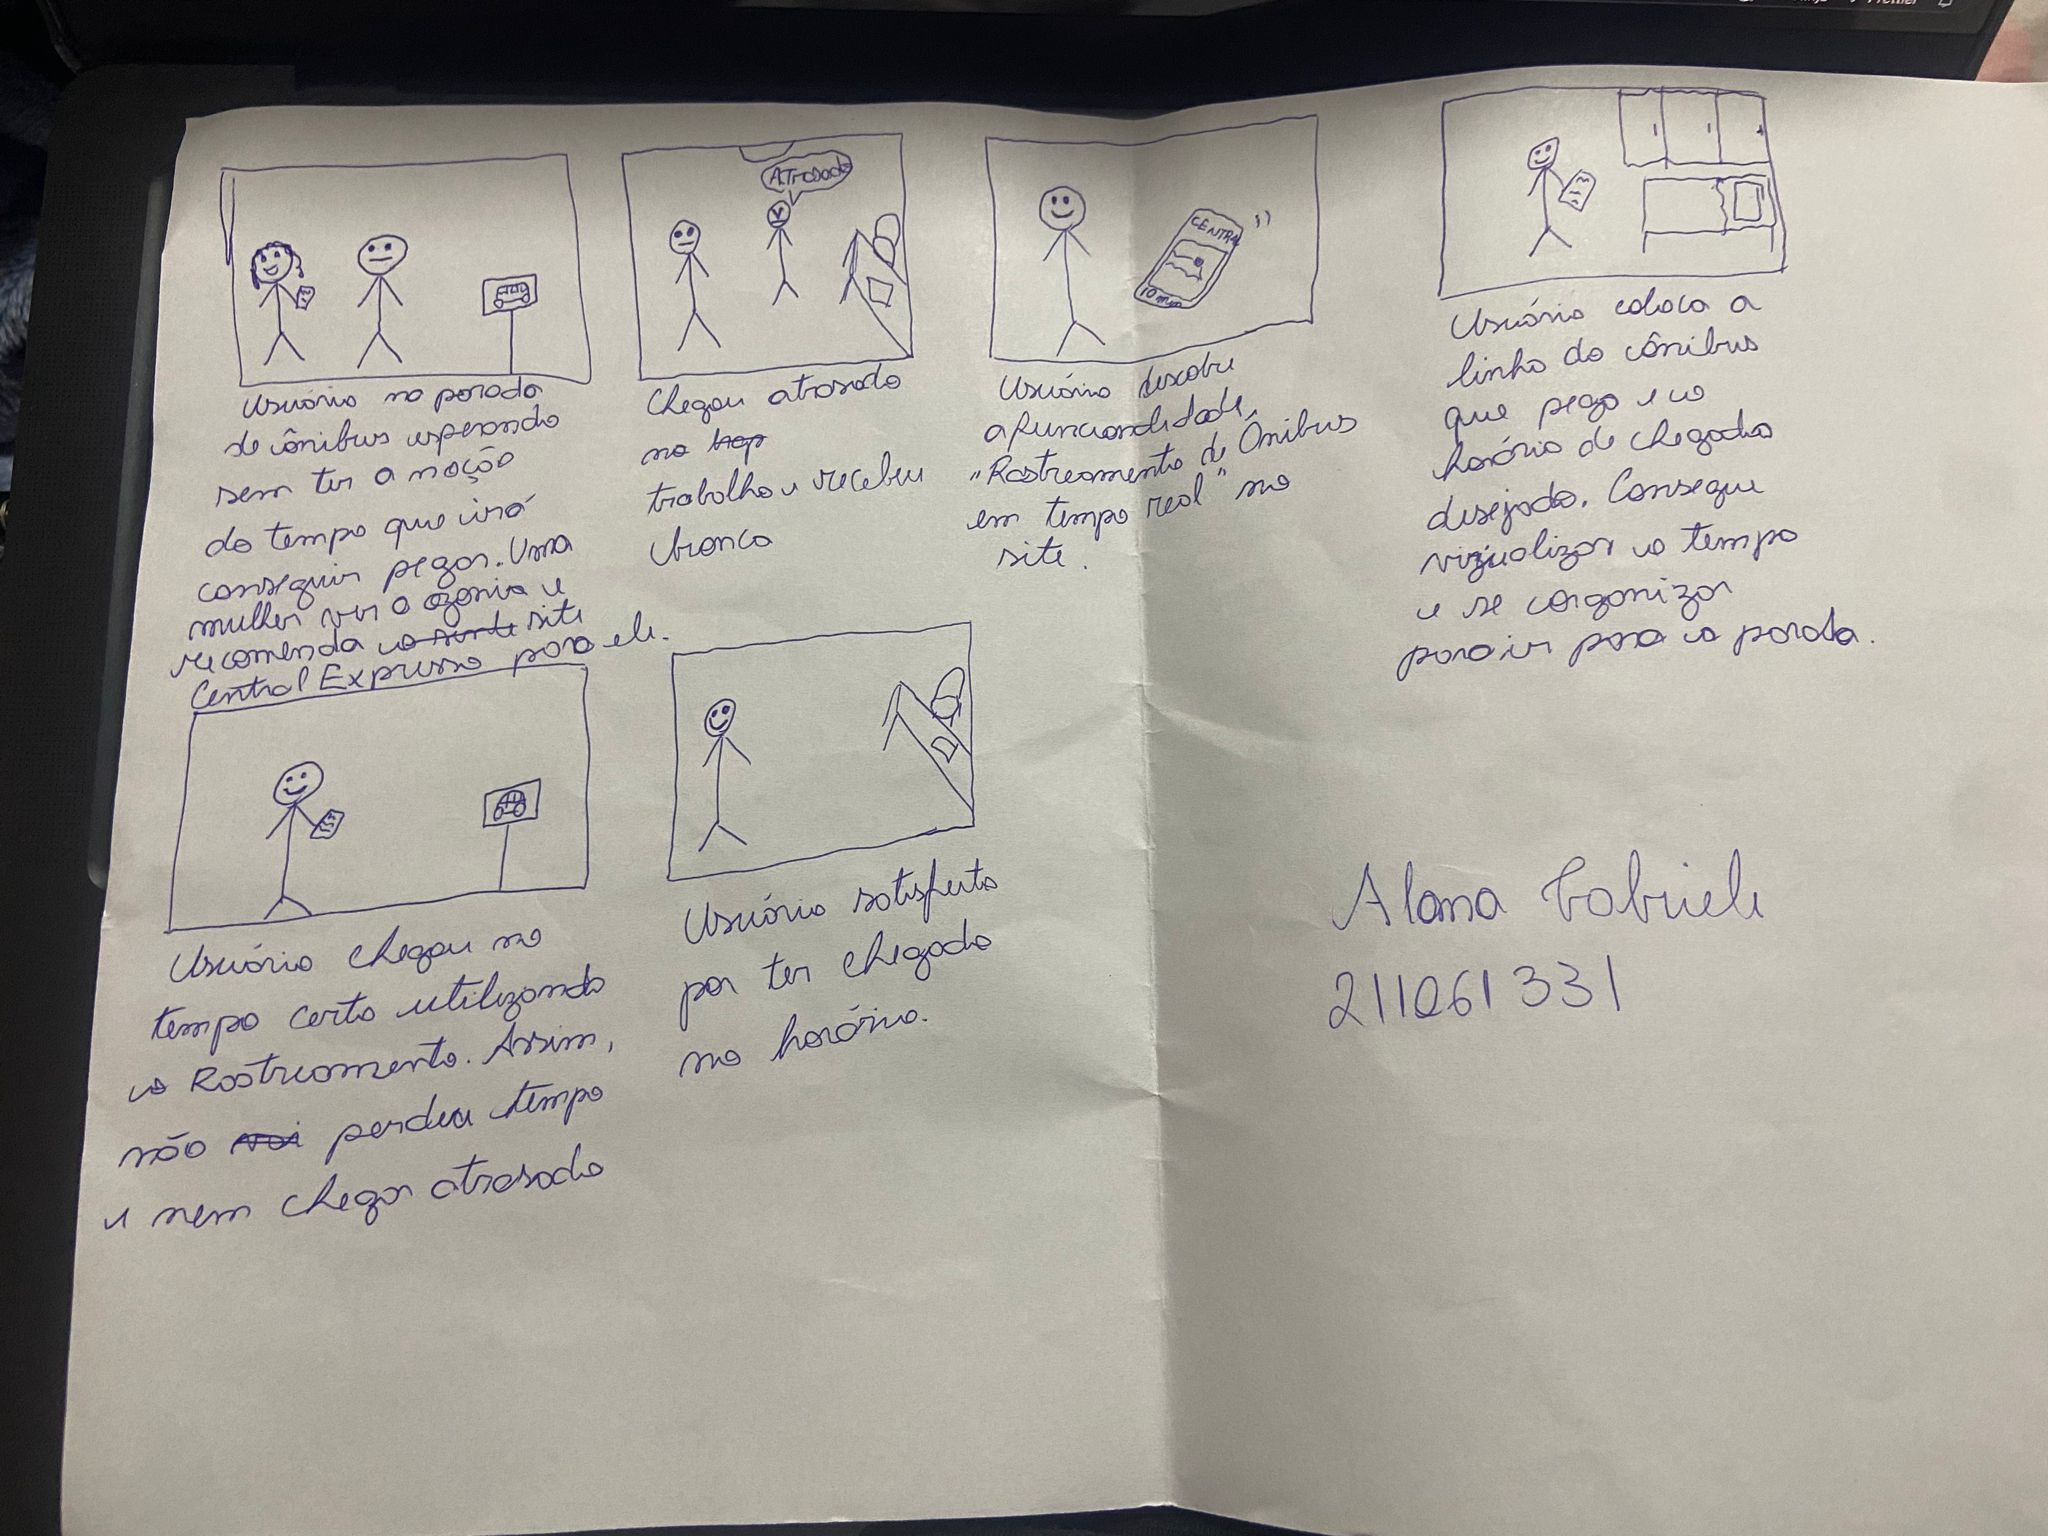 Usuário na parada
de ônibus esperando
sem ter a noção
do tempo que irá
conseguir pegar. Uma
mulher ver o agonia e
recomenda site
Central Expresso para ele.
ATrasado
Chegou atrasado
no
trabalho e recebeu
bronca
CENTRAL
10 min
Usuário descobre
a funcionalidade
"Rastreamento de Ônibus
em tempo real" no
site.
Usuário coloca a
linha do ônibus
que pega e o
horário de chegada
desejado. Consegue
vizualizar o tempo
e se organizar
para ir para a parada.
Usuário chegou no
tempo certo utilizando
o Rastreamento. Assim,
não perdeu tempo
e nem chegar atrasado
Usuário satisfeito
por ter chegado
no horário.
Alana Gabriele
211061331